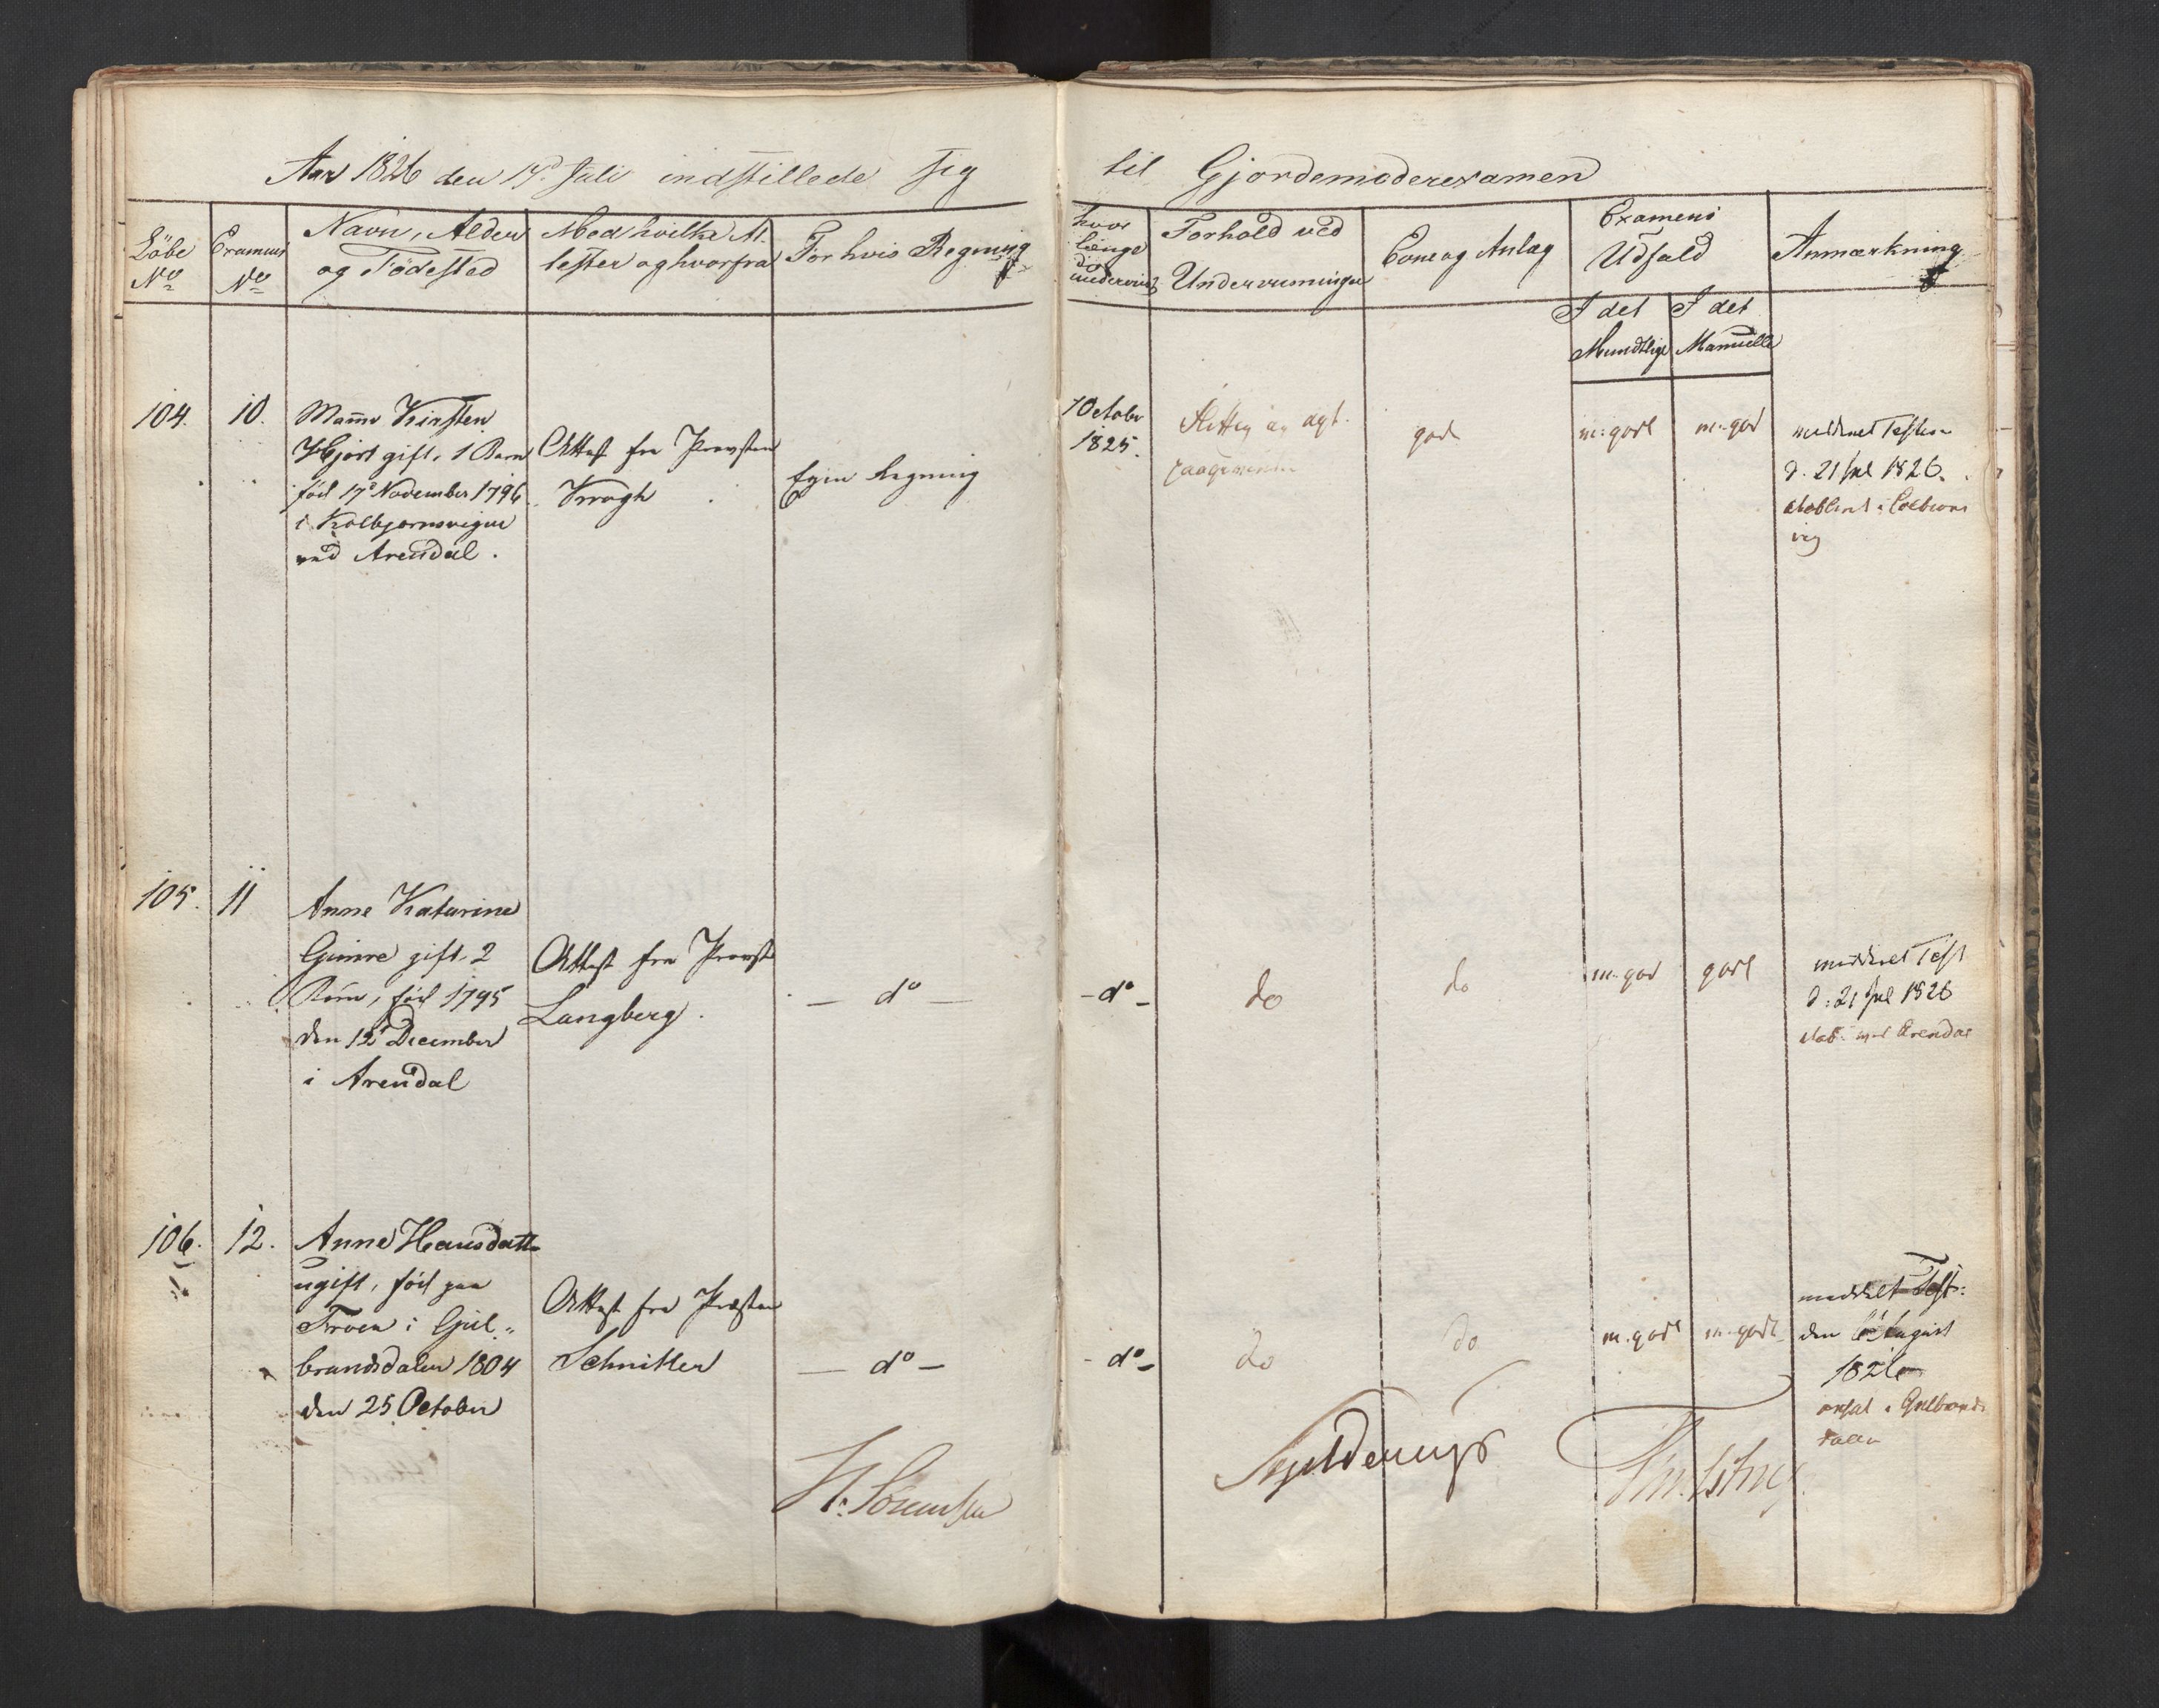 Aar 1826 den 17d Juli indstillede sig
til Gjordemoderexamen
Löbe
No
Examens
No
Navn, Alder
og Födested
Med hvilke At-
tester og hvorfra
For hvis Regning
hvor
længe
underviist
Forhold ved
Underviisningen
Evne og Anlag
Examens
Udfald
I det
Mundtlige
I det
Manuelle
Anmærkning
104.
10.
Kirsten
Hjort gift, 1 Barn
föd 17d November 1796
i Kolbjornsvigen
ved Arendal.
Attest fra Provsten
Krogh
Egen Regning
1 October
1825.
Flittig og agt-
god
m: godt
m: god
meddeelt Testim
d. 21 Jul 1826.
etablert i Colbiorns
vig
105.
11
Anne Katarine
gift, 2
Börn, föd 1795
den 12d December
i Arendal
Attest fra Provst
Langberg.
— do —
- do -
do
do
m. god
godt
meddelt Test
d: 21 Jul 1826
etab: ved Arendal
106.
12.
Anne Hansdatter
ugift, föd paa
Froen i Gul-
brandsdalen 1804
den 25 October
Attest fra Præsten
Schnitler
— do —
- do -
do
do
m. godt
m. godt
meddelt Test:
den August
1826
ansat i Gulbrands
dalen
N. Sörensen
Skjelderup